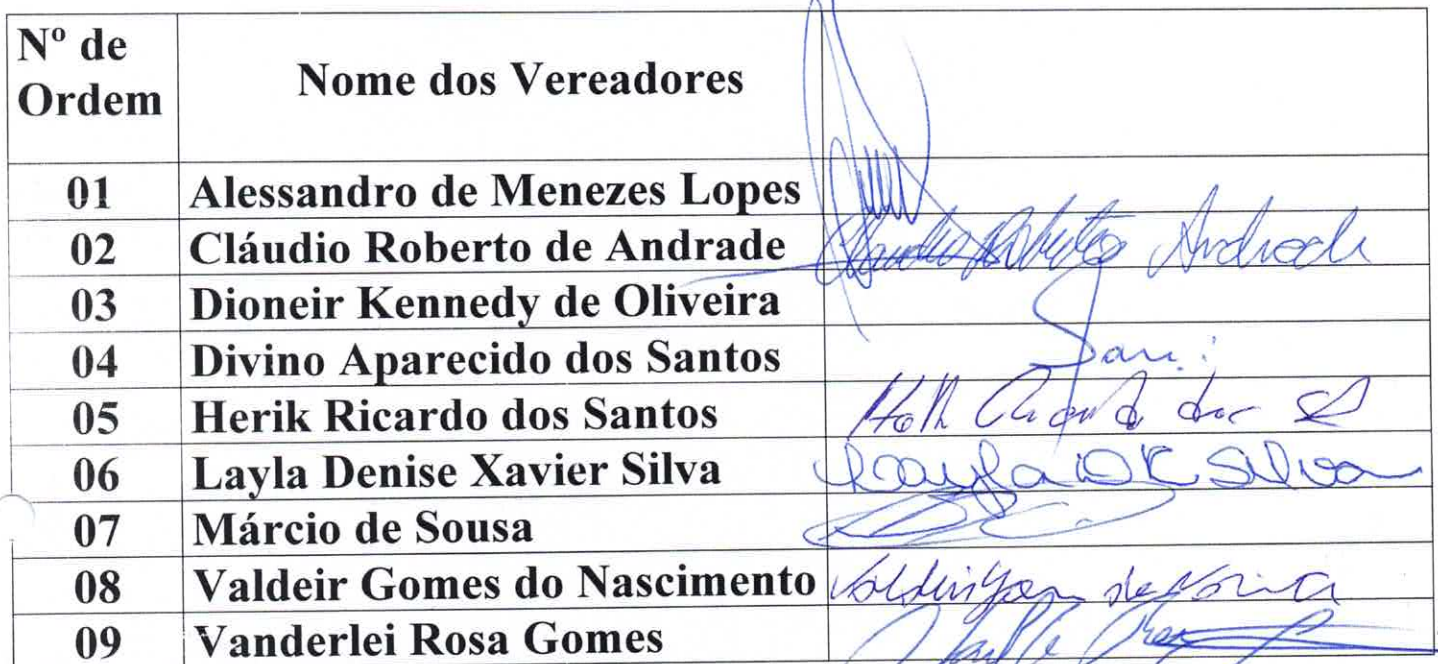 Nº de
Ordem
Nome dos Vereadores
01 Alessandro de Menezes Lopes
02 Cláudio Roberto de Andrade Claudio Roberto Andrade
03 Dioneir Kennedy de Oliveira
04 Divino Aparecido dos Santos
05 Herik Ricardo dos Santos
06 Layla Denise Xavier Silva Layla D X Silva
07 Márcio de Sousa
08 Valdeir Gomes do Nascimento
09 Vanderlei Rosa Gomes